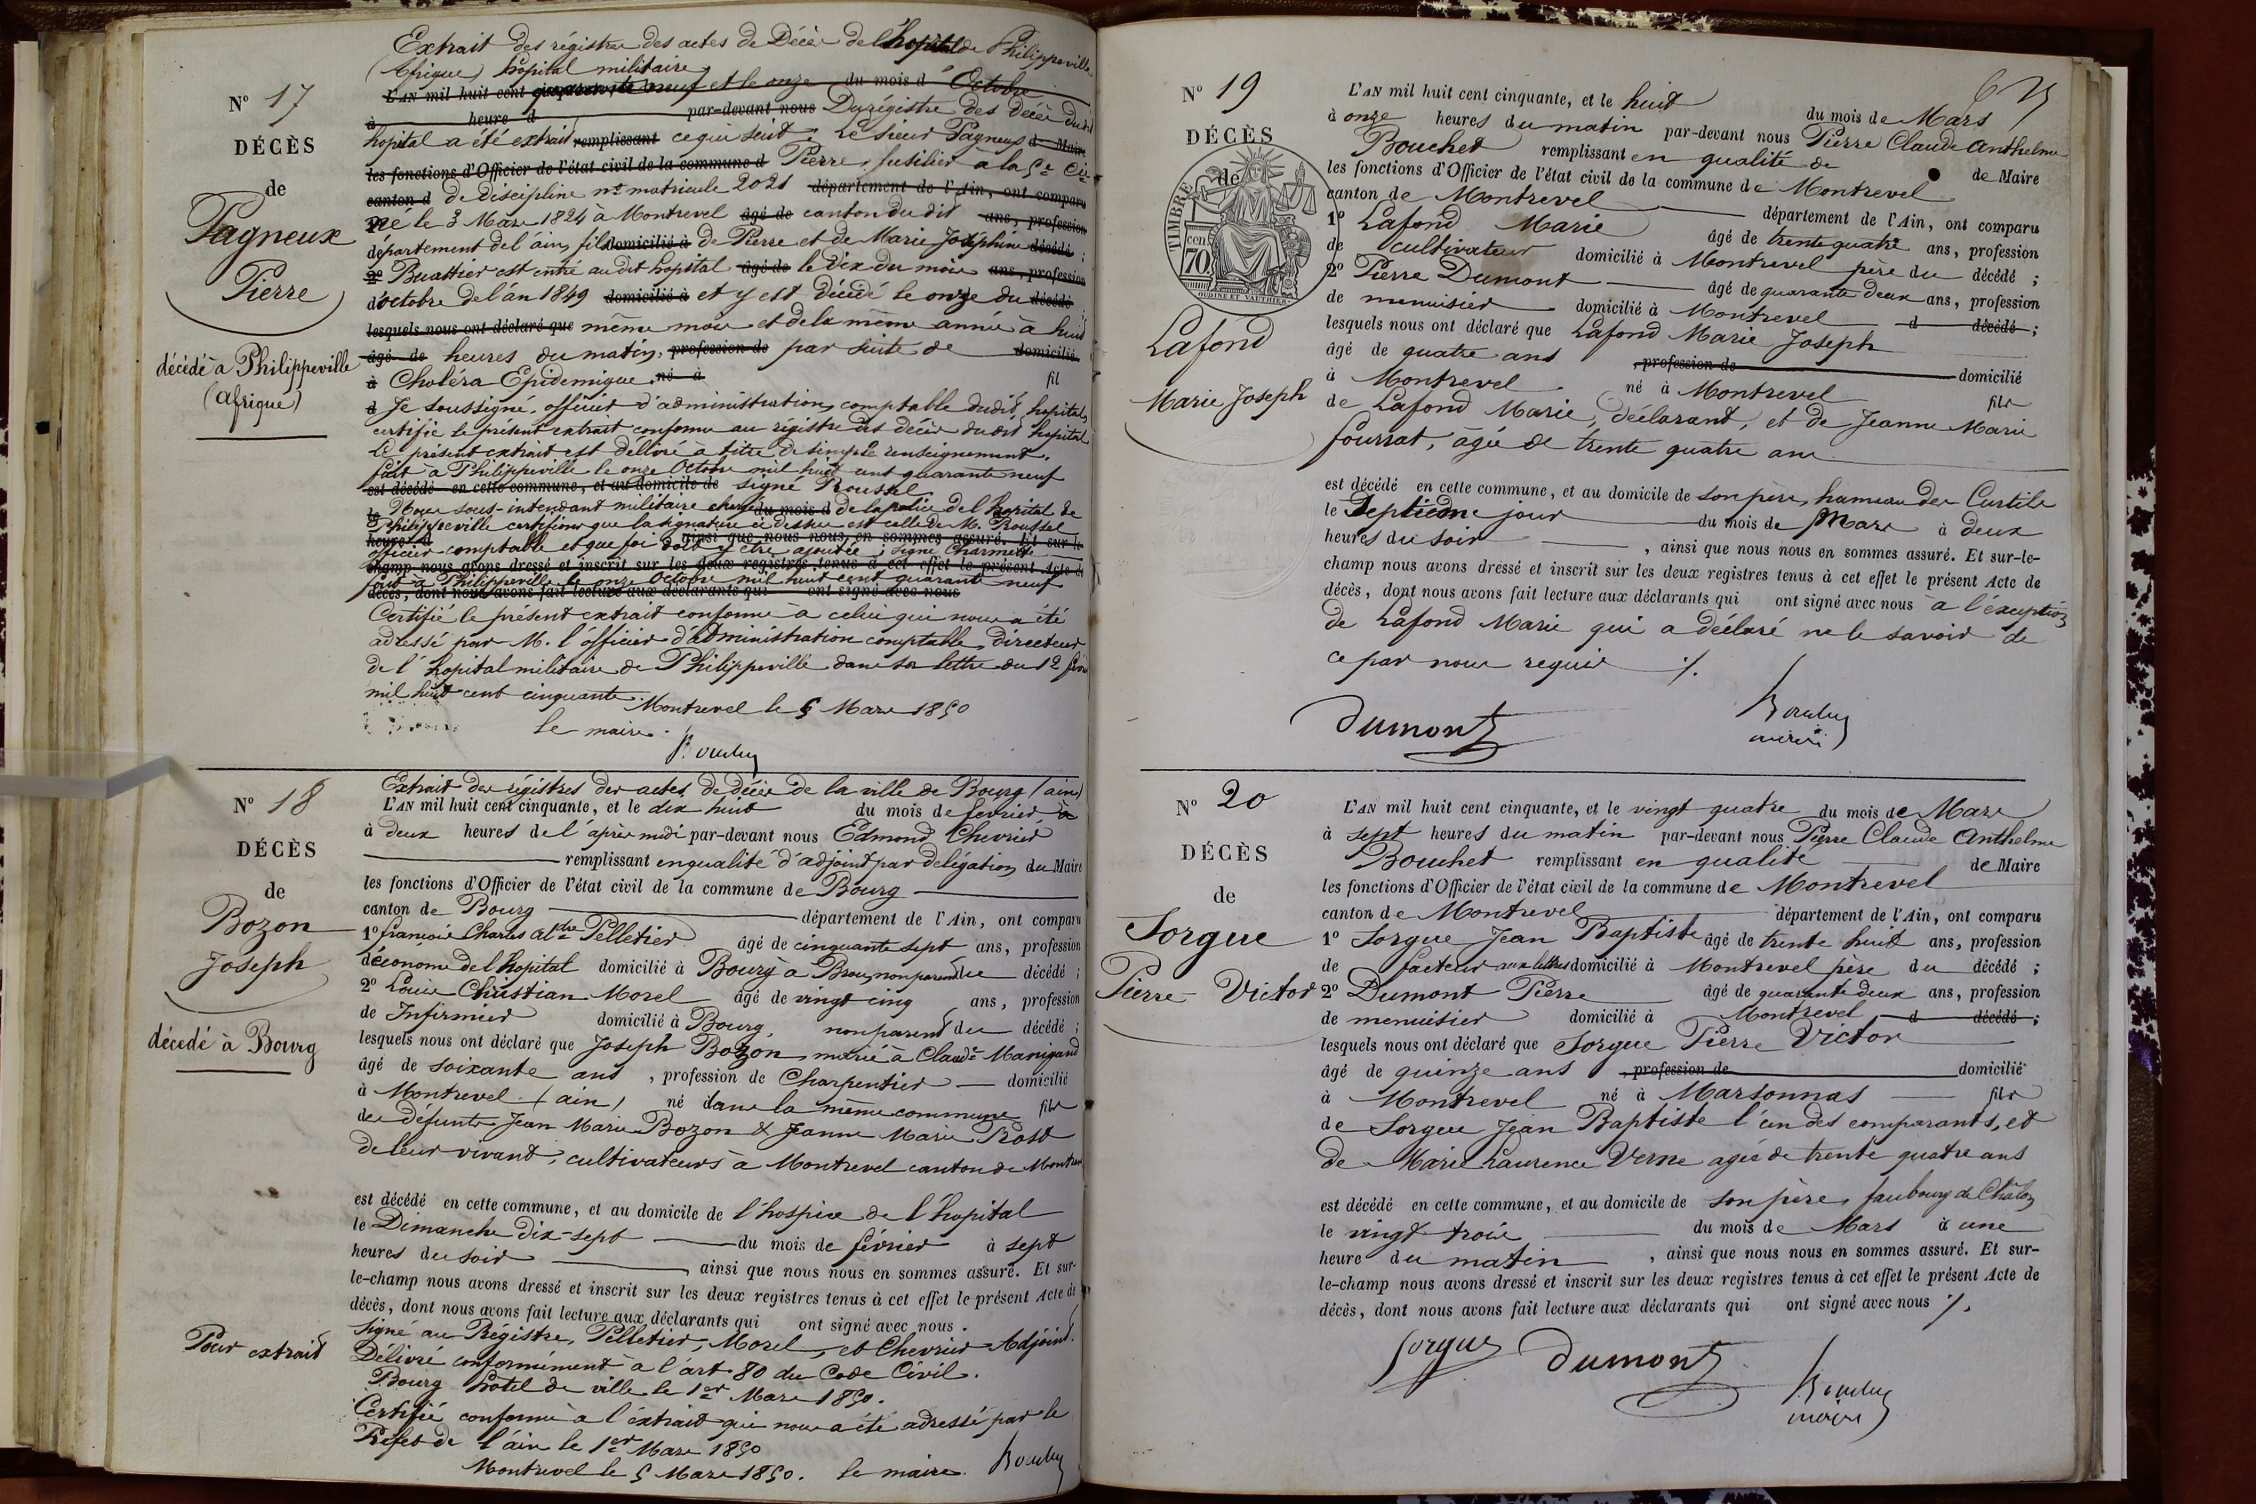 Extrait des régistres des actes de Décès de l'hopital de Philippeville
(Afrique) hopital militaire
N° 17
L'AN mil huit cent quarante neuf et le onze du mois d'Octobre
à heure d par-devant nous Du régistre des décès dudit
DÉCÈS
hopital a été extrait remplissant ce qui suit. Le sieur Pagneux d Maire
les fonctions d'Officier de l'état civil de la commune d Pierre, fusilier a la 5e Cie
de
canton d de discipline n° matricule 2021 département de l'Ain, ont comparu
Pagneux
né le 3 Mars 1824 à Montrevel âgé de canton du dit ans, profession
département de l'ain, fils domicilié à de Pierre et de Marie Joséphine décédé ;
Pierre
2° Buattier est entré au dit hopital âgé de le dix du mois ans, profession
d'octobre de l'an 1849 domicilié à et y est décédé le onze du décédé
lesquels nous ont déclaré que même mois et de la même année à huit
décédé à Philippeville
(afrique)
âgé de heures du matin, profession de par suite de domicilié
à Choléra Epidemique. né à fil
d Je soussigné, officier d'administration, comptable dudit hopital,
certifie le présent extrait conforme au régistre des décès dudit hopital
Le présent extrait est délivré à titre de simple renseignement.
fait à Philippeville le onze Octobre mil huit cent quarante neuf
est décédé en cette commune, et au domicile de signé Roussel
le Nous sous-intendant militaire chargé du mois d de la police de l'hopital de
Philippeville certifions que la signature ci dessus est celle de M. Roussel
heure d ainsi que nous nous en sommes assuré. Et sur-le-
officier comptable et que foi doit y être ajoutée; signé Charmette
champ nous avons dressé et inscrit sur les deux registres tenus à cet effet le présent Acte de
fait à Philippeville le onze Octobre mil huit cent quarante neuf
décès, dont nous avons fait lecture aux déclarants qui ont signé avec nous
Certifié le présent extrait conforme à celui qui nous a été
adressé par M. l'officier d'administration comptable, directeur
de l'hopital militaire de Philippeville dans sa lettre du 12
mil huit cent cinquante. Montrevel le 5 Mars 1850
le maire.
Bouchet
Extrait des régistres des actes de décès de la ville de Bourg (ain)
N° 18
L'AN mil huit cent cinquante, et le dix huit du mois de février à
à deux heures de l'après midi par-devant nous Edmond Chevrier
DÉCÈS
remplissant en qualité d'adjoint par délégation du Maire
les fonctions d'Officier de l'état civil de la commune de Bourg
de
canton de Bourg département de l'Ain, ont comparu
Bozon
1° françois Charles Aldre Pelletier âgé de cinquante sept ans, profession
Joseph
d'économe de l'hopital domicilié à Bourg à Brou, non parent du décédé ;
2° Louis Christian Morel âgé de vingt cinq ans, profession
de Infirmier domicilié à Bourg, non parent du décédé ;
décedé à Bourg
lesquels nous ont déclaré que Joseph Bozon, marié à Claude Manigand
âgé de soixante ans , profession de Charpentier domicilié
à Montrevel (ain) né dans la même commune fils
des défunts Jean Marie Bozon & Jeanne Marie Prost
de leur vivant, cultivateurs à Montrevel canton de Montrevel
est décédé en cette commune, et au domicile de l'hospice de l'hopital
le Dimanche dix-sept du mois de février à sept
heures du soir , ainsi que nous nous en sommes assuré. Et sur-
le-champ nous avons dressé et inscrit sur les deux registres tenus à cet effet le présent Acte de
décès, dont nous avons fait lecture aux déclarants qui ont signé avec nous.
Signé au Régistre, Pelletier, Morel, et Chevrier Adjoint.
Pour extrait
Délivré conformément à l'art. 80 du Code Civil.
Bourg hotel de ville le 1er Mars 1850.
Certifié conforme à l'extrait qui nous a été adressé par le
Préfet de l'ain le 1er Mars 1850
Montrevel le 5 Mars 1850. le maire. Bouchet
N° 19
L'AN mil huit cent cinquante, et le huit du mois de Mars
à onze heures du matin par-devant nous Pierre Claude Anthelme
DÉCÈS
Bouchet remplissant en qualité de de Maire
les fonctions d'Officier de l'état civil de la commune de Montrevel
de
TIMBRE
cen
70
OUDINE ET VAUTHIER
canton de Montrevel département de l'Ain, ont comparu
1° Lafond Marie âgé de trente quatre ans, profession
de cultivateur domicilié à Montrevel père du décédé ;
2° Pierre Dumont âgé de quarante deux ans, profession
de menuisier domicilié à Montrevel d décédé ;
Lafond
lesquels nous ont déclaré que Lafond Marie Joseph
âgé de quatre ans , profession de domicilié
Marie Joseph
à Montrevel né à Montrevel fils
de Lafond Marie, déclarant, et de Jeanne Marie
fourrat, agée de trente quatre ans
est décédé en cette commune, et au domicile de son père, hameau des Curtils
le Septième jour du mois de Mars à deux
heures du soir , ainsi que nous nous en sommes assuré. Et sur-le-
champ nous avons dressé et inscrit sur les deux registres tenus à cet effet le présent Acte de
décès, dont nous avons fait lecture aux déclarants qui ont signé avec nous à l'exception
de Lafond Marie qui a déclaré ne le savoir de
ce par nous requis ./.
Dumont
Bouchet
maire
N° 20
L'AN mil huit cent cinquante, et le vingt quatre du mois de Mars
à sept heures du matin par-devant nous Pierre Claude Anthelme
DÉCÈS
Bouchet remplissant en qualité de Maire
les fonctions d'Officier de l'état civil de la commune de Montrevel
de
canton de Montrevel département de l'Ain, ont comparu
Sorgue
1° Sorgue Jean Baptiste âgé de trente huit ans, profession
de facteur aux lettres domicilié à Montrevel père du décédé ;
Pierre Victor
2° Dumont Pierre âgé de quarante deux ans, profession
de menuisier domicilié à Montrevel d décédé ;
lesquels nous ont déclaré que Sorgue Pierre Victor
âgé de quinze ans , profession de domicilié
à Montrevel né à Marsonnas fils
de Sorgue Jean Baptiste l'un des comparants, et
de Marie Laurence Verne agée de trente quatre ans
est décédé en cette commune, et au domicile de son père, faubourg de Châlon
le vingt trois du mois de Mars à une
heure du matin , ainsi que nous nous en sommes assuré. Et sur-
le-champ nous avons dressé et inscrit sur les deux registres tenus à cet effet le présent Acte de
décès, dont nous avons fait lecture aux déclarants qui ont signé avec nous ./.
Sorgue Dumont
Bouchet
maire